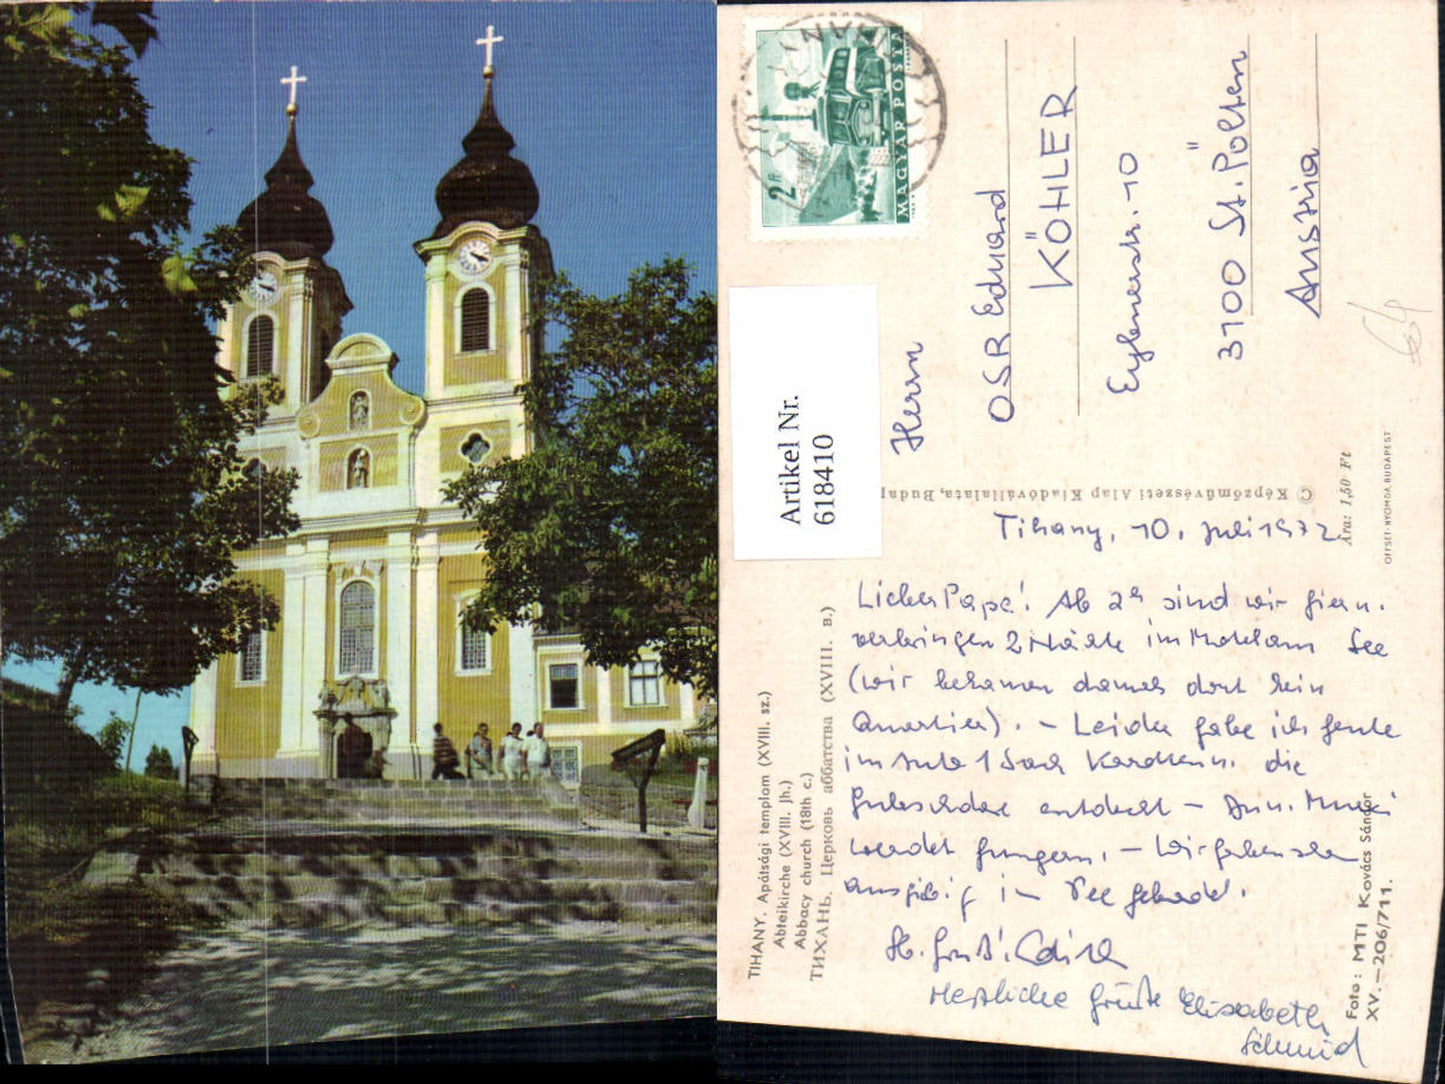 2 Ft
MAGYAR POSTA
Artikel Nr.
618410
Herrn
OSR Eduard
KÖHLER
3100 St. Pölten
Austria
© Képzőművészeti Alap Kiadóvállalata, Budap
Ára: 1,50 Ft
OFFSET-NYOMDA BUDAPEST
TIHANY. Apátsági templom (XVIII. sz.)
Abteikirche (XVIII. Jh.)
Abbacy church (18th c.)
ТИХАНЬ. Церковь аббатства (XVIII. в.)
Tihany, 10. Juli 1972
Lieber Papa! Ab 2h sind wir hier u.
verbringen 2 Nächte im
(wir bekamen damals dort kein
Quartier). - Leider habe ich heute
im Auto 1 die
entdeckt -
- Wir haben
ausgiebig im See gebadet.
Hz. Gruß!
Herzliche Grüße Elisabeth
Schmid
Foto: MTI Kovács Sándor
XV.—206/711.